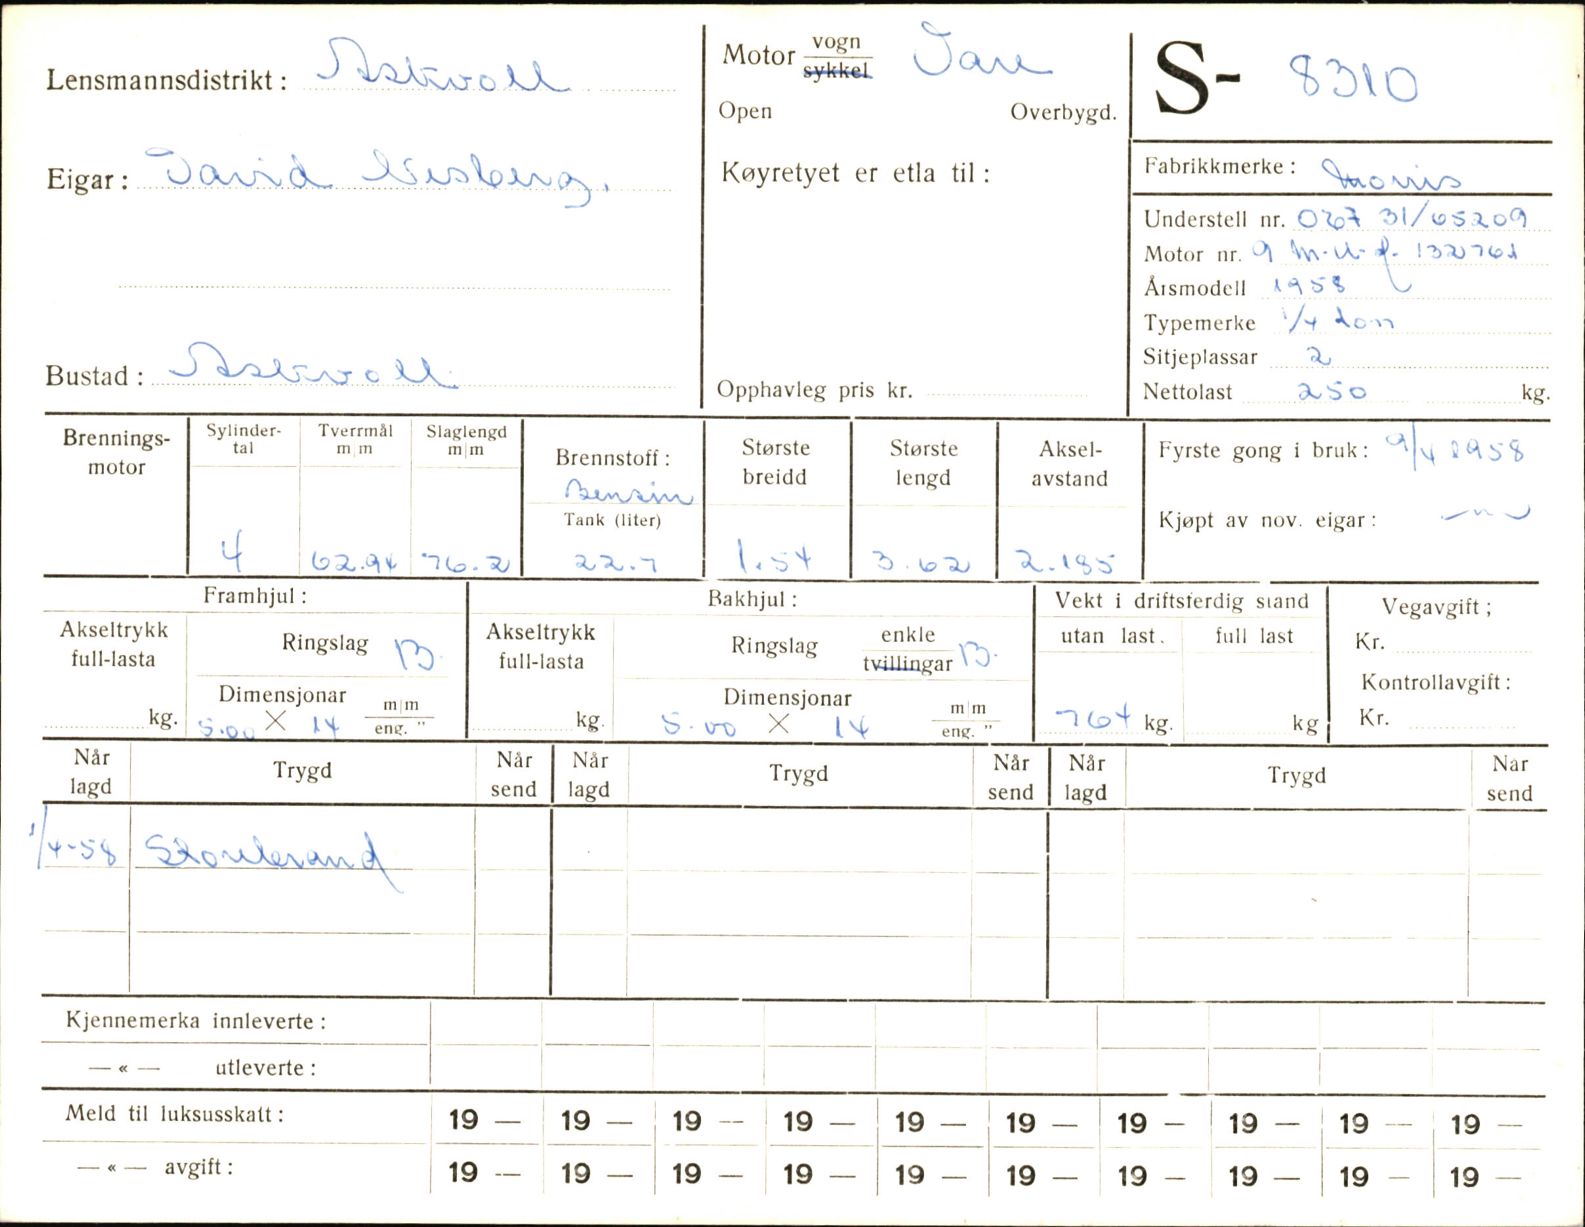 Lensmannsdistrikt: Askvoll
Motor vogn Vare
sykkel
S- 8310
Open Overbygd.
Eigar: David Nesberg.
Køyretyet er etla til:
Fabrikkmerke: Morris
Understell nr. 31/65209
Motor nr. 9 M-U- 132761
Årsmodell 1958
Typemerke 1/4 tonn
Sitjeplassar 2
Bustad: Askvoll
Opphavleg pris kr.
Nettolast 250 kg.
Brennings-
motor
Sylinder-
tal
4
Tverrmål
m|m
62.94
Slaglengd
m|m
76.2
Brennstoff:
Bensin
Tank (liter)
22.7
Største
breidd
1.54
Største
lengd
3.62
Aksel-
avstand
2.185
Fyrste gong i bruk: 9/4 1958
Kjøpt av nov. eigar:
Framhjul:
Akseltrykk
full-lasta
kg.
Ringslag B.
Dimensjonar m|m
5.00 × 14 eng. "
Bakhjul:
Akseltrykk
full-lasta
kg.
Ringslag enkle B.
tvillingar
Dimensjonar m|m
5.00 × 14 eng. "
Vekt i driftsferdig stand
utan last. full last
764 kg. kg
Vegavgift;
Kr.
Kontrollavgift:
Kr.
Når lagd Trygd Når send Når lagd Trygd Når send Når lagd Trygd Når send
1/4-58 Storebrand
Kjennemerka innleverte:
— « — utleverte:
Meld til luksusskatt: 19 — 19 — 19 — 19 — 19 — 19 — 19 — 19 — 19 — 19 —
— « — avgift: 19 — 19 — 19 — 19 — 19 — 19 — 19 — 19 — 19 — 19 —